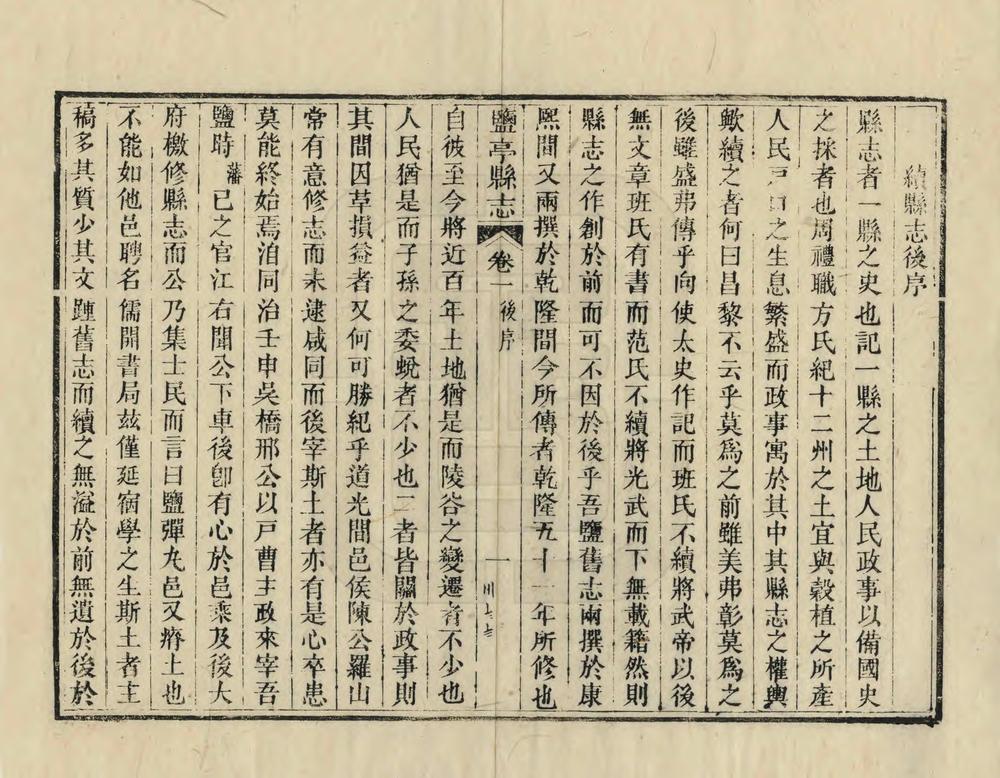 續縣志後序
縣志者一縣之史也記一縣之土地人民政事以備國史
之採者也周禮職方氏紀十二州之土宜與穀植之所產
人民戶口之生息繁盛而政事寓於其中其縣志之權輿
歟續之者何曰昌黎不云乎莫爲之前雖美弗彰莫爲之
後雖盛弗傳乎向使太史作記而班氏不續將武帝以後
無文章班氏有書而范氏不續將光武而下無載籍然則
縣志之作創於前而可不因於後乎吾鹽舊志兩撰於康
熙間又兩撰於乾隆間今所傳者乾隆五十一年所修也
鹽亭縣志 卷一 後序 一
自彼至今將近百年土地猶是而陵谷之變遷者不少也
人民猶是而子孫之委蛻者不少也二者皆關於政事則
其間因革損益者又何可勝紀乎道光間邑侯陳公羅山
常有意修志而未逮咸同而後宰斯土者亦有是心卒患
莫能終始焉洎同治壬申吳橋邢公以戸曹主政來宰吾
鹽時藩已之官江右聞公下車後卽有心於邑乘及後大
府檄修縣志而公乃集士民而言曰鹽彈丸邑又瘠土也
不能如他邑聘名儒開書局兹僅延宿學之生斯土者主
稿多其質少其文踵舊志而續之無溢於前無遺於後於